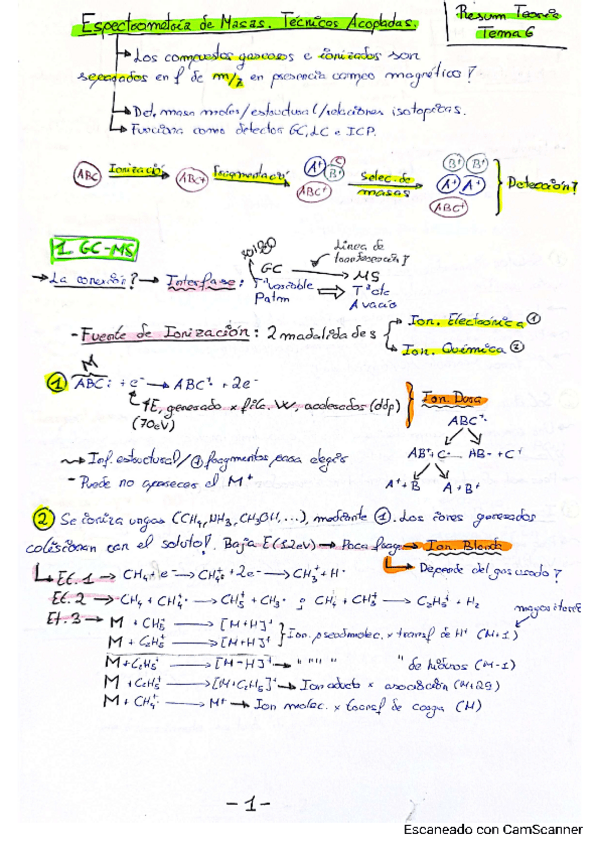 Espectrometría de Masas. Técnicas Acopladas.
Resum Teoría
Tema 6
Los compuestos gaseosos e ionizados son
separados en f de m/z en presencia campo magnético
Det. masa molec/estructural/relaciones isotópicas.
Funciona como detector GC, LC e ICP.
ABC Ionización ABC+ Fragmentación A+ C B+ ABC+ Selec. de masas B+ B+ A+ A+ ABC+ Detección
1. GC-MS
Línea de
GC → MS
→ La conexión? → Interfase: Tª variable ⇒ Tª cte
Patm A vacío
- Fuente de Ionización: 2 modalidades
Ion. Electrónica ①
Ion. Química ②
M
① ABC: + e⁻ → ABC⁺· + 2e⁻
↑E, generado x fila. W, acelerados (ddp)
(70eV)
Ion. Dura
ABC⁺·
AB⁺ + C· HB· + C⁺
A⁺ + B A + B⁺
Inf. estructural/ fragmentos para elegir
- Puede no aparecer el M⁺
② Se ioniza un gas (CH₄, NH₃, CH₃OH, ...), mediante ①. Los iones generados
colisionan con el soluto. Baja E (12eV) → Poca frag. → Ion. Blanda
Depende del gas usado
Et. 1 → CH₄ + e⁻ → CH₄⁺ + 2e⁻ → CH₃⁺ + H·
Et. 2 → CH₄ + CH₄⁺ → CH₅⁺ + CH₃· ; CH₄ + CH₃⁺ → C₂H₅⁺ + H₂
Et. 3 → M + CH₅⁺ → [M+H]⁺
M + C₂H₅⁺ → [M+H]⁺
Ion. pseudmolec. x transf de H⁺ (M+1)
M + C₂H₅⁺ → [M-H]⁺ → " " " " de hidruro (M-1)
M + C₂H₅⁺ → [M+C₂H₅]⁺ → Ion aducto x asociación (M+29)
M + CH₄⁺ → M⁺ → Ion molec. x transf de carga (M)
-1-
Escaneado con CamScanner